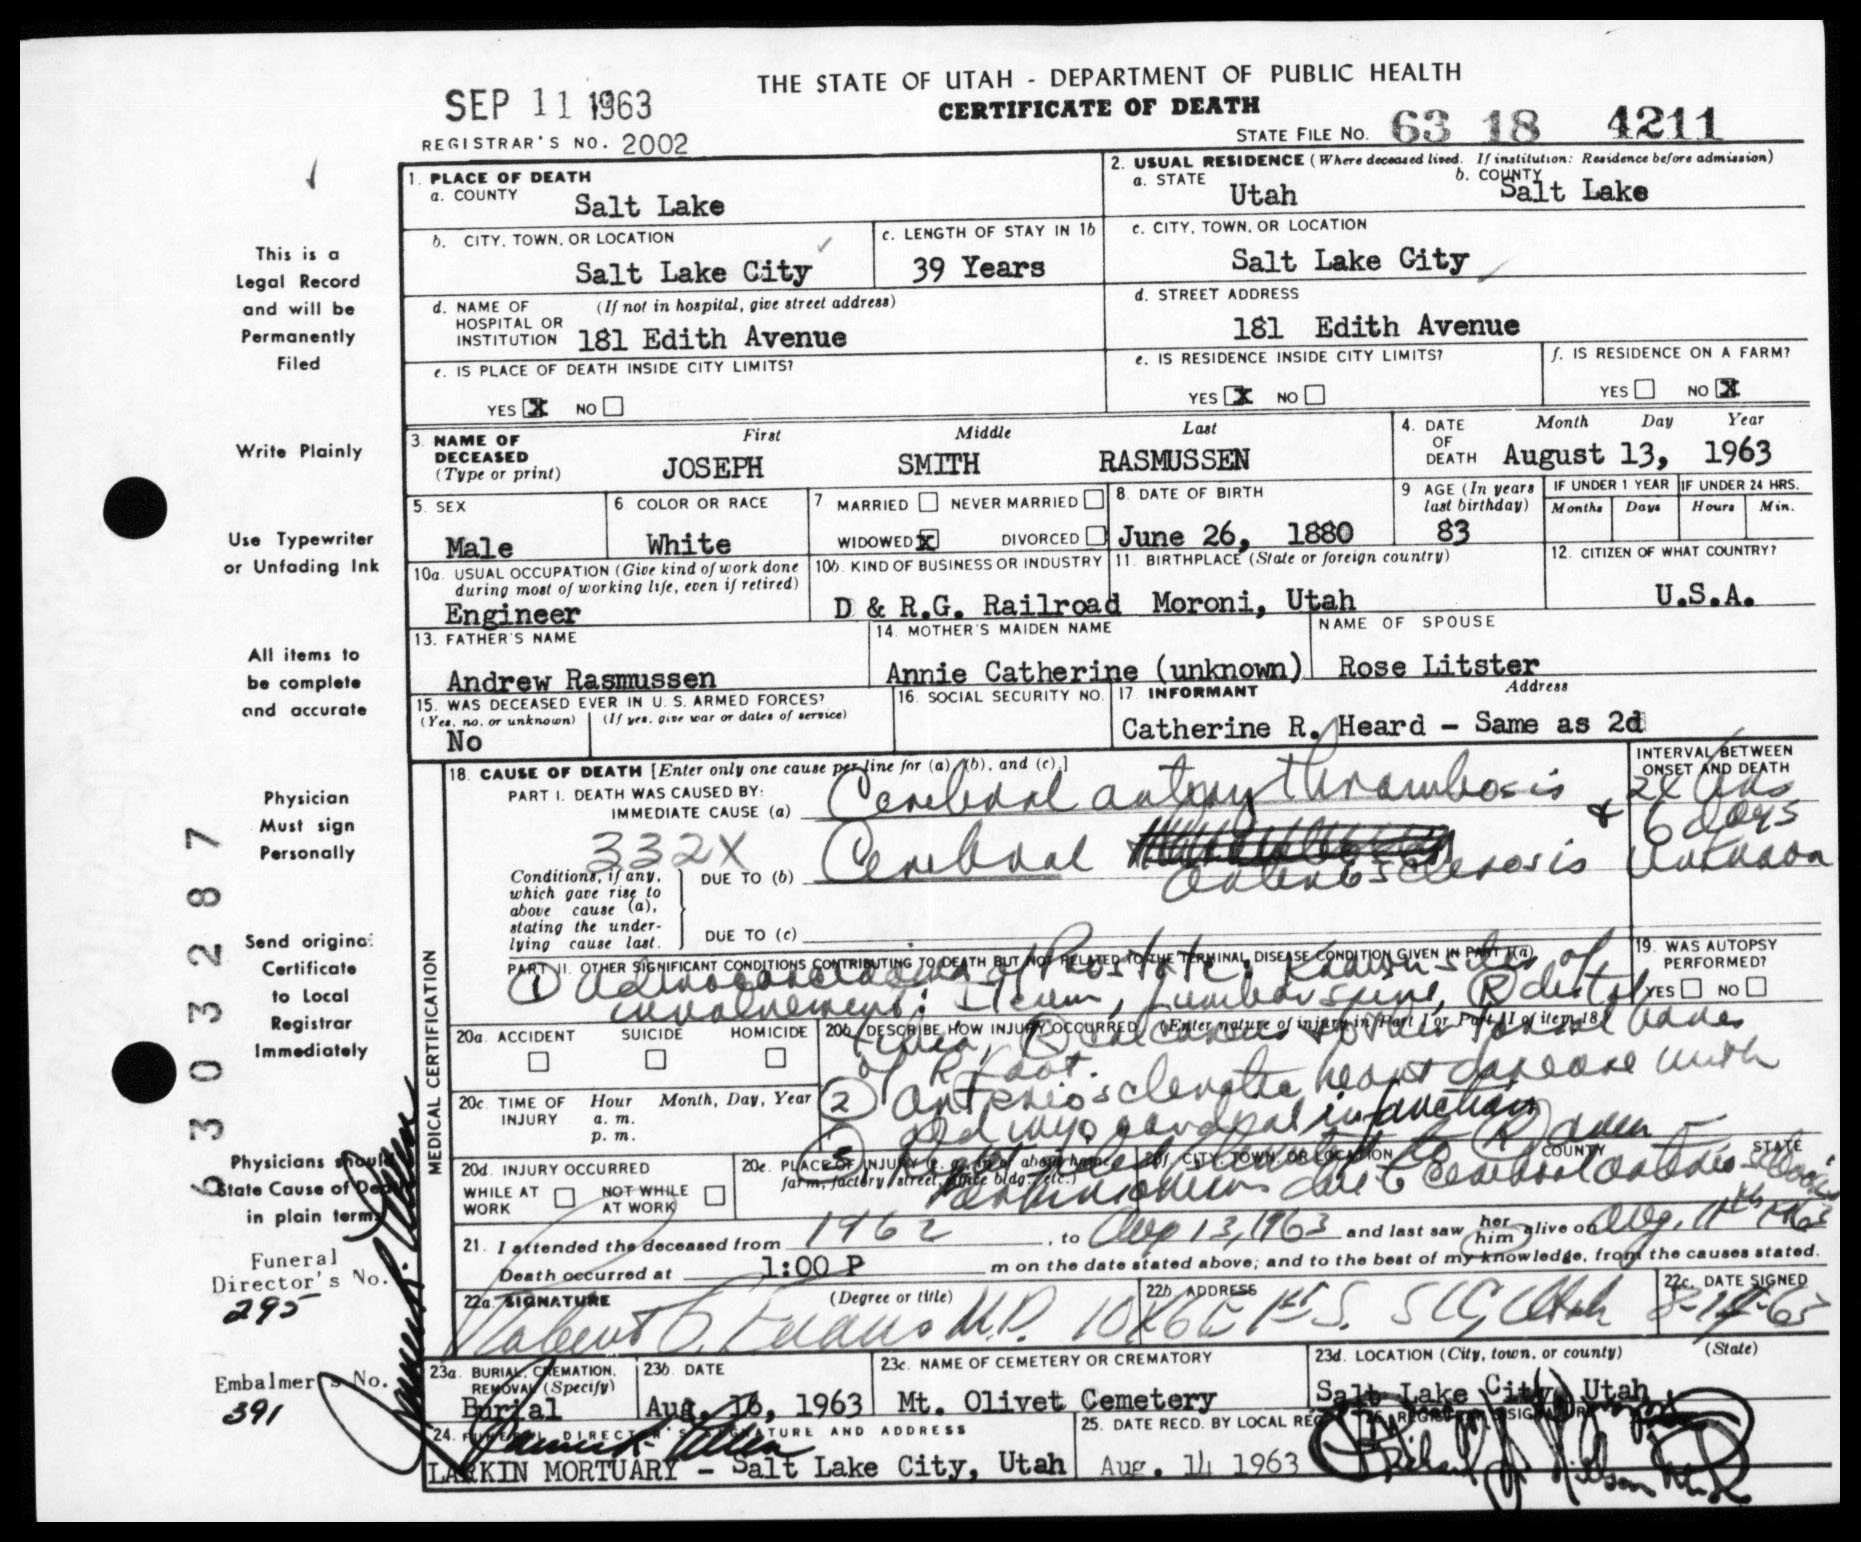 THE STATE OF UTAH - DEPARTMENT OF PUBLIC HEALTH
SEP 11 1963
CERTIFICATE OF DEATH
REGISTRAR'S NO. 2002
STATE FILE NO. 63 18 4211
1. PLACE OF DEATH
a. COUNTY
Salt Lake
2. USUAL RESIDENCE (Where deceased lived. If institution: Residence before admission)
a. STATE
Utah
b. COUNTY
Salt Lake
b. CITY, TOWN, OR LOCATION
Salt Lake City
c. LENGTH OF STAY IN 1b
39 Years
c. CITY, TOWN, OR LOCATION
Salt Lake City
d. NAME OF HOSPITAL OR INSTITUTION
(If not in hospital, give street address)
181 Edith Avenue
d. STREET ADDRESS
181 Edith Avenue
e. IS PLACE OF DEATH INSIDE CITY LIMITS?
YES X NO
e. IS RESIDENCE INSIDE CITY LIMITS?
YES X NO
f. IS RESIDENCE ON A FARM?
YES NO X
3. NAME OF DECEASED
(Type or print)
First Middle Last
JOSEPH SMITH RASMUSSEN
4. DATE OF DEATH
Month Day Year
August 13, 1963
5. SEX
Male
6 COLOR OR RACE
White
7 MARRIED NEVER MARRIED
WIDOWED X DIVORCED
8. DATE OF BIRTH
June 26, 1880
9 AGE (In years last birthday)
83
IF UNDER 1 YEAR
Months Days
IF UNDER 24 HRS.
Hours Min.
10a. USUAL OCCUPATION (Give kind of work done during most of working life, even if retired)
Engineer
10b. KIND OF BUSINESS OR INDUSTRY
D & R.G. Railroad
11. BIRTHPLACE (State or foreign country)
Moroni, Utah
12. CITIZEN OF WHAT COUNTRY?
U.S.A.
13. FATHER'S NAME
Andrew Rasmussen
14. MOTHER'S MAIDEN NAME
Annie Catherine (unknown)
NAME OF SPOUSE
Rose Litster
15. WAS DECEASED EVER IN U.S. ARMED FORCES?
(Yes, no, or unknown) (If yes, give war or dates of service)
No
16. SOCIAL SECURITY NO.
17. INFORMANT Address
Catherine R. Heard - Same as 2d
MEDICAL CERTIFICATION
18. CAUSE OF DEATH [Enter only one cause per line for (a), (b), and (c).]
INTERVAL BETWEEN ONSET AND DEATH
PART I. DEATH WAS CAUSED BY:
IMMEDIATE CAUSE (a) Cerebral artery thrombosis
6 days
332X
Conditions, if any, which gave rise to above cause (a), stating the underlying cause last.
DUE TO (b) Cerebral arteriosclerosis
Unknown
DUE TO (c)
PART II. OTHER SIGNIFICANT CONDITIONS CONTRIBUTING TO DEATH BUT NOT RELATED TO THE TERMINAL DISEASE CONDITION GIVEN IN PART I(a)
1 Adenocarcinoma of Prostate. Known sites of
involvement: Ileum, Lumbar spine, R distal
of R foot.
2 Arteriosclerotic heart disease with
old myocardial infarction
19. WAS AUTOPSY PERFORMED?
YES NO
20a. ACCIDENT SUICIDE HOMICIDE
20b. DESCRIBE HOW INJURY OCCURRED. (Enter nature of injury in Part I or Part II of item 18.)
20c. TIME OF INJURY
Hour Month, Day, Year
a. m.
p. m.
20d. INJURY OCCURRED
WHILE AT WORK NOT WHILE AT WORK
20e. PLACE OF INJURY (e. g., in or about home, farm, factory, street, office bldg., etc.)
20f. CITY, TOWN, OR LOCATION COUNTY STATE
Parkinsonism due to Cerebral arteriosclerosis
21. I attended the deceased from 1962, to Aug 13, 1963 and last saw her him alive on Aug. 11th 1963
Death occurred at 1:00 P m on the date stated above; and to the best of my knowledge, from the causes stated.
22a. SIGNATURE (Degree or title)
Robert C. Evans M.D.
22b. ADDRESS
SLC, Utah
22c. DATE SIGNED
23a. BURIAL, CREMATION, REMOVAL (Specify)
Burial
23b. DATE
Aug. 16, 1963
23c. NAME OF CEMETERY OR CREMATORY
Mt. Olivet Cemetery
23d. LOCATION (City, town, or county) (State)
Salt Lake City, Utah
24. FUNERAL DIRECTOR'S SIGNATURE AND ADDRESS
LARKIN MORTUARY - Salt Lake City, Utah
25. DATE RECD. BY LOCAL REG.
Aug. 14 1963
26. REGISTRAR'S SIGNATURE
This is a
Legal Record
and will be
Permanently
Filed
Write Plainly
Use Typewriter
or Unfading Ink
All items to
be complete
and accurate
Physician
Must sign
Personally
Send original
Certificate
to Local
Registrar
Immediately
Physicians should
State Cause of Death
in plain terms
Funeral
Director's No.
295
Embalmer's No.
391
6303287